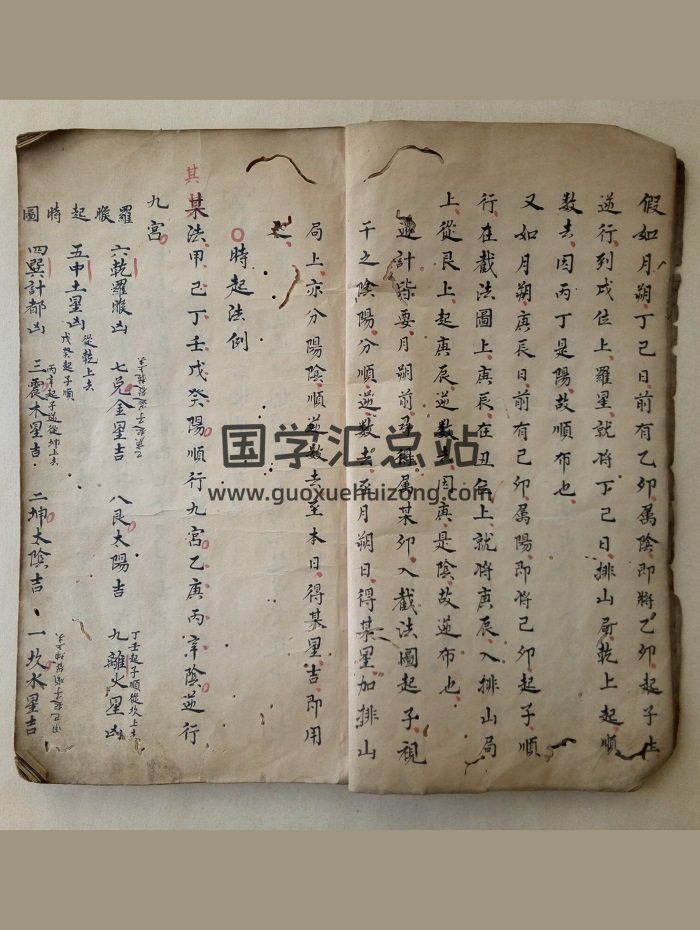 假如月朔丁巳日前有乙卯屬陰即將乙卯起子
逆行到戌位上羅星就將丁巳日排山局乾上起順
数去因丙丁是陽故順布也
又如月朔庚辰日前有己卯属陽即將己卯起子順
行在截法圖上庚辰在丑上就將庚辰入排山局
上從艮上起庚辰逆数去因庚是陰故逆布也
逆計皆要月朔前得属某卯入截法圖起子視
干之陰陽分順逆数去至月朔日得某星加排山
局上亦分陽陰順逆数去至本日得某星吉即用
時起法例
其
某法甲己丁壬戊癸陽順行九宮乙庚丙辛陰逆行
九宮
羅睺起時圖
六乾羅睺凶 七兌金星吉 八艮太陽吉 九離火星凶
丁壬起子順從坎上去
五中土星凶
從乾上去
戊癸起子順
四巽計都凶 三震木星吉 二坤太陰吉 一坎水星吉
丙辛起子逆從坤上去
国学汇总站
www.guoxuehuizong.com